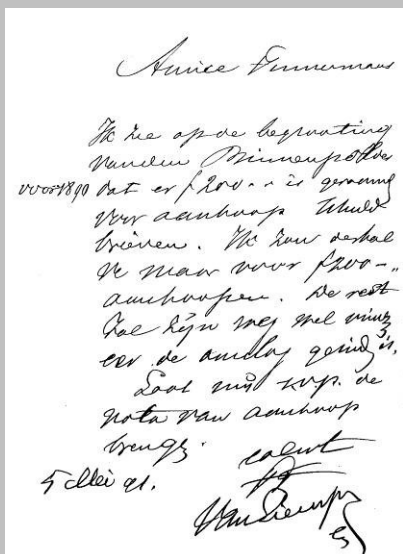 Amice Timmermans
Ik zie op de begrooting
van den Binnenpolder
voor 1890 dat er f 200.- is geraamd
voor aankoop schuld
brieven. Ik zou derhal
ve maar voor f 200.-
aankoopen. De rest
zal zijn weg wel vinden
eer de omslag geind is.
Laat mij s.v.p. de
nota van aankoop
brengen.
5 Mei 91.